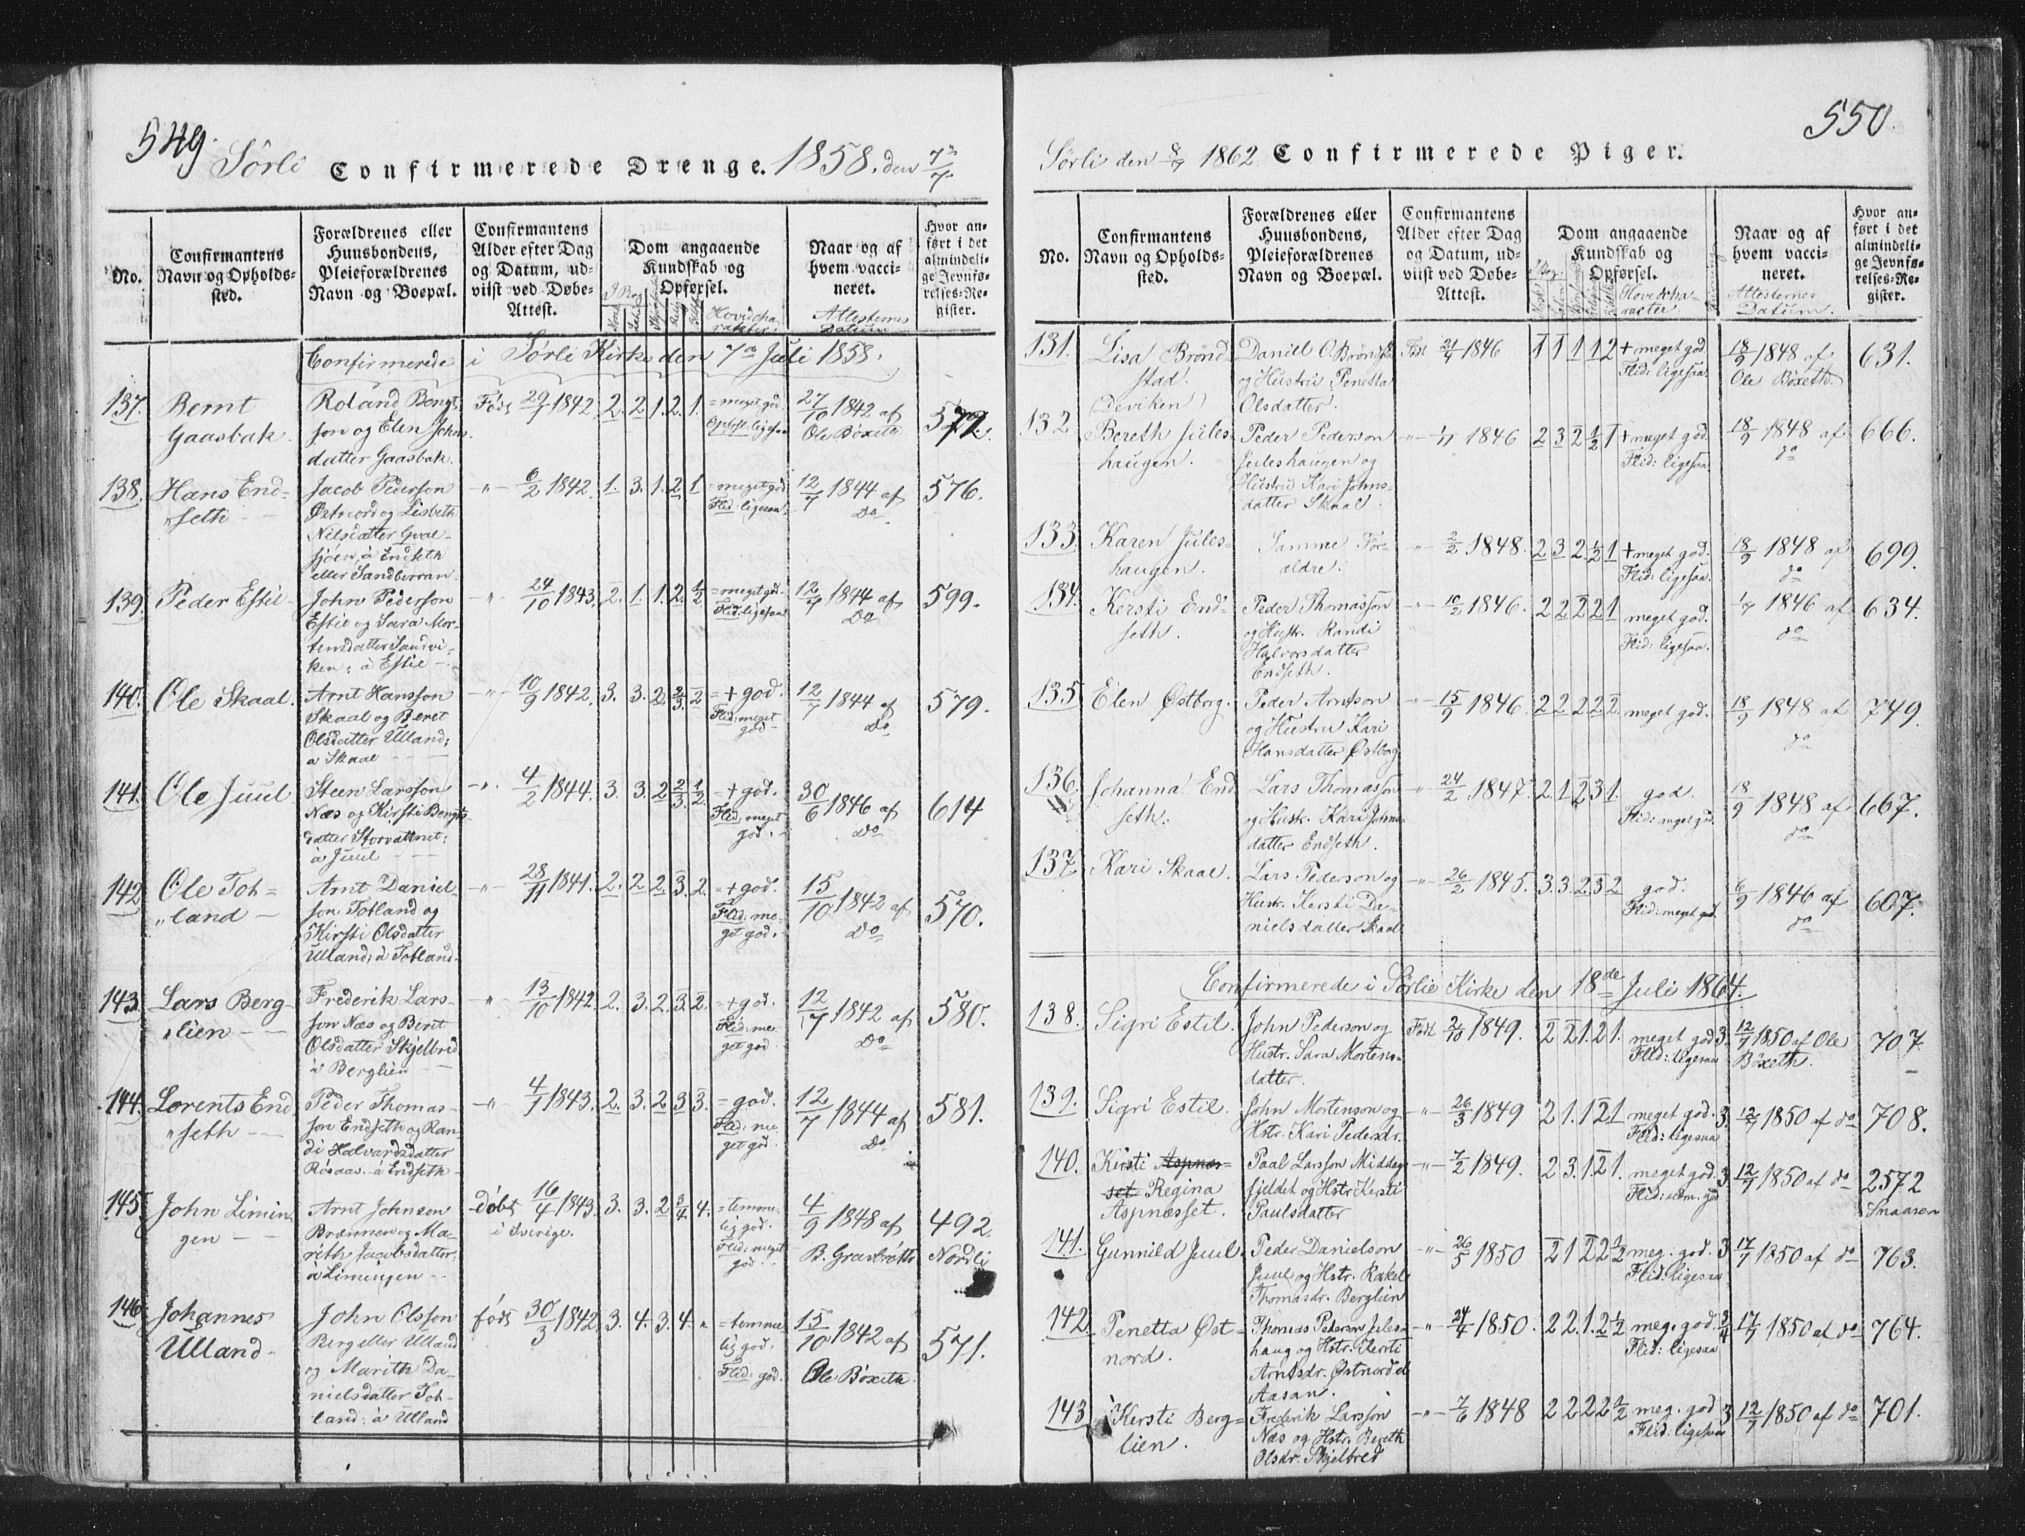 549.
Sörli Confirmerede Drenge. 1858. den 7de/7
No.
Confirmantens Navn og Opholds-sted.
Forældrenes eller Huusbondens, Pleieforældrenes Navn og Boepæl.
Confirmantens Alder efter Dag og Datum, ud-viist ved Døbe-Attest.
Dom angaaende Kundskab og Opførsel.
Hovedcha-rakter
Naar og af hvem vacci-neret.
Attesternes Datum
Hvor an-ført i det almindeli-ge Jevnfø-relses-Re-gister.
Confirmerede i Sörli Kirke den 7de Juli 1858.
137. Bernt Gaasbak. Roland Bengt-son og Elen Johns-datter Gaasbak. Født 29/7 1842. 2. 2. 1. 2. 1. = meget god. Opførs: ligesaa 27/10 1842 af Ole Böxeth 572.
138. Hans End-seth Jacob Pederson Østnord og Lisbeth Nilsdatter Qvæl-sjöen, à Endseth eller Sandberran. -"- 6/2 1842. 1. 3. 1. 2. 1. = meget god Flid: ligesaa. 12/7 1844 af Do 576.
139. Peder Estil John Pederson Estil og Sara Mor-tensdatter Sandvi-ken, à Estil -"- 24/10 1843. 2. 1. 1. 2. 1/2 = meget god. Flid: ligesaa 12/7 1844 af Do 599.
140. Ole Skaal. Arnt Hansson Skaal og Beret Olsdatter Ulland; à Skaal -"- 10/9 1842. 3. 3. 2. 2/3. 2 = + god. Flid: meget god 12/7 1844 af Do 579.
141. Ole Juul Steen Larsson Næs og Kirsti Bengts-datter Storvattnet; à Juul -"- 4/2 1844. 3. 3. 2 2/3. 1/2. = + god. Flid: meget god. 30/6 1846 af Do 614
142. Ole Tot-land Arnt Daniel-son Totland og Kirsti Olsdatter Ulland; à Totland. -"- 28/11 1841. 2. 2. 2. 3. 2. = + god. Flid: me-get god. 15/10 1842 af Do 570.
143. Lars Berg-lien Frederik Lars-son Næs og Berit Olsdatter Skjelbred à Berglien -"- 13/10 1842. 2. 3. 2. 3. 2. = + god. Flid: me-get god 12/7 1842 af Do 580.
144. Lorents End-seth Peder Thomas-son Endseth og Ran-di Halvardsdatter Rösaas. à Endseth -"- 4/7 1843. 2. 3. 2. 3. 3. = god. Flid: me-get god. 12/7 1844 af Do 581.
145. John Limin-gen Arnt Johnsen Brænnen og Ma-reth Jacobsdatter; à Limingen döbt 16/4 1843. i Sverige. 3. 3. 2 3/4. 4. = temme-lig god. Flid: meget god. 4/9 1848 af B. Graabröth 492. Nordli
146. Johannes Ulland John Olsson Berg eller Ulland og Marith Da-nielsdatter Tot-land: à Ulland født 30/3 1842. 3. 4. 3. 4. " = temme-lig god. Flid: god. 15/10 1842 af Ole Böxeth. 571.
550.
Sörli den 8/7 1862. Confirmerede Piger.
No.
Confirmantens Navn og Opholds-sted.
Forældrenes eller Huusbondens, Pleieforældrenes Navn og Boepæl.
Confirmantens Alder efter Dag og Datum, ud-viist ved Døbe-Attest.
Dom angaaende Kundskab og Opførsel.
Hovedcha-racter
Naar og af hvem vacci-neret.
Attesternes Datum.
Hvor an-ført i det almindeli-ge Jevnfø-relses-Re-gister.
131. Lisa Brönd-stad. (Deviken) Daniel O. Bröndst. og Hustrü Penetta Olsdatter. Født 21/4 1846 1 1 1 1 2 + meget god. Flid: ligesaa. 18/9 1848 af Ole Böxeth. 631.
132. Bereth Jules-haugen. Peder Pederson Juleshaugen og Hustrü Kari Johns-datter Skaal. -"- 1/7 1846 2 3 2 1/2 1 + meget god. Flid: ligesaa. 18/9 1848 af do 666.
133. Karen Jules-haugen. Samme For-ældre. -"- 2/2 1848. 2 3 2 1/2 1 + meget god. Flid: ligesaa. 18/9 1848 af do 699.
134. Kersti End-seth. Peder Thomasson og Hustr. Randi Halvorsdatter Endseth. -"- 10/2 1846. 2 2 2 2 1 meget god. Flid: ligesaa. 1/7 1846 af do 634.
135. Elen Østborg. Peder Arntson og Hustru Kari Hansdatter Østborg -"- 15/9 1846. 2 2 2 2 2. meget god. 18/9 1848 af do 749.
136. Johanna End-seth. Lars Thomasson og Hustr. Kari Johns-datter Endseth. -"- 24/2 1847. 2. 1. 2 3 1. god. Flid: meget god. 18/9 1848 af do 667.
137. Kari Skaal. Lars Pederson og Hustr. Kersti Da-nielsdatter Skaal -"- 26/2 1845. 3. 3. 2 3 2 god. Flid: meget god. 6/9 1846 af do 607.
Confirmerede i Sörlie Kirke den 18de Juli 1864.
138. Sigri Estil. John Pederson og Hustr. Sara Mortens-datter. Født 2/10 1849. 2 2 1. 2 1. meget god 3. Flid: ligesaa 12/7 1850 af Ole Böxeth. 707.
139. Sigri Estil. John Mortenson og Hstr. Kari Pedersdr. -"- 26/3 1849 2 1. 1 2 1 meget god. 3. Flid: ligesaa 12/7 1850 af do 708.
140. Kersti Aspnæs-set Regina Aspnæsset. Paal Larsson Middags-fjeldet og Hstr Kersti Paulsdatter -"- 7/2 1849. 2 3. 1 2 1. meget god 3 Flid: tem. god 12/7 1850 af do 2572 Snaasen
141. Gunnild Juul. Peder Danielson Juul og Hstr. Rakel Thomasdr. Berglien -"- 26/5 1850 2 1 2 2 1/2 meg. god. 3 Flid: ligesaa 17/7 1850 af do 763.
142. Penetta Øst-nord. Thomas Pederson Jules-haug og Hstr. Kersti Arntsdr. Østnord el. Aasan. -"- 24/4 1850. 2 2 1. 2 1/2 meg. god. 3/4 Flid: ligesaa 17/7 1850 af do 764.
143. Kersti Berg-lien. Frederik Larsson Næs og Hstr. Bereth Olsdr. Skjelbred -"- 7/6 1848 2 2 2 2 1/2 meg. god 3 Flid: ligesaa 12/7 1850 af do 701.